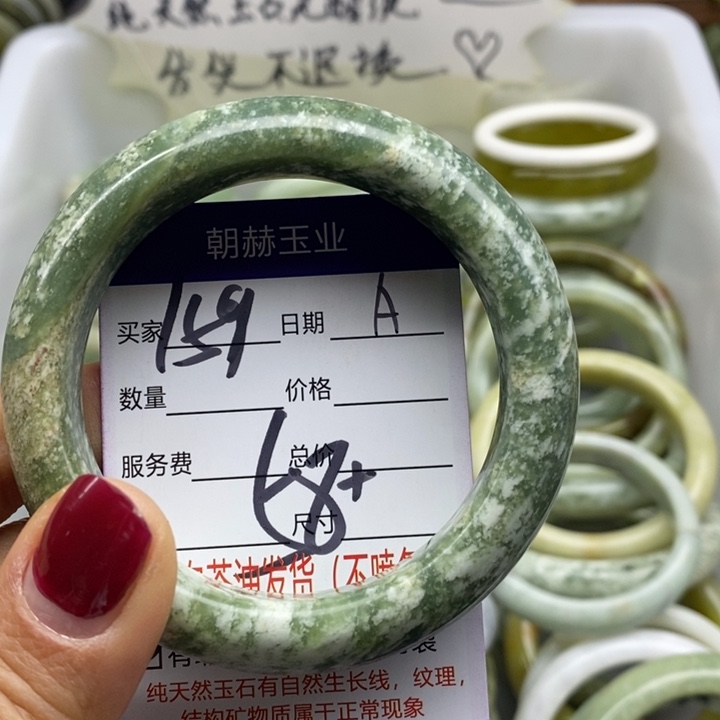 纯天然玉石
售出不退换
朝赫玉业
买家 159 日期 A
数量 价格
服务费 总价
68+
尺寸
发货（不喷
纯天然玉石有自然生长线，纹理，
结构矿物质属于正常现象